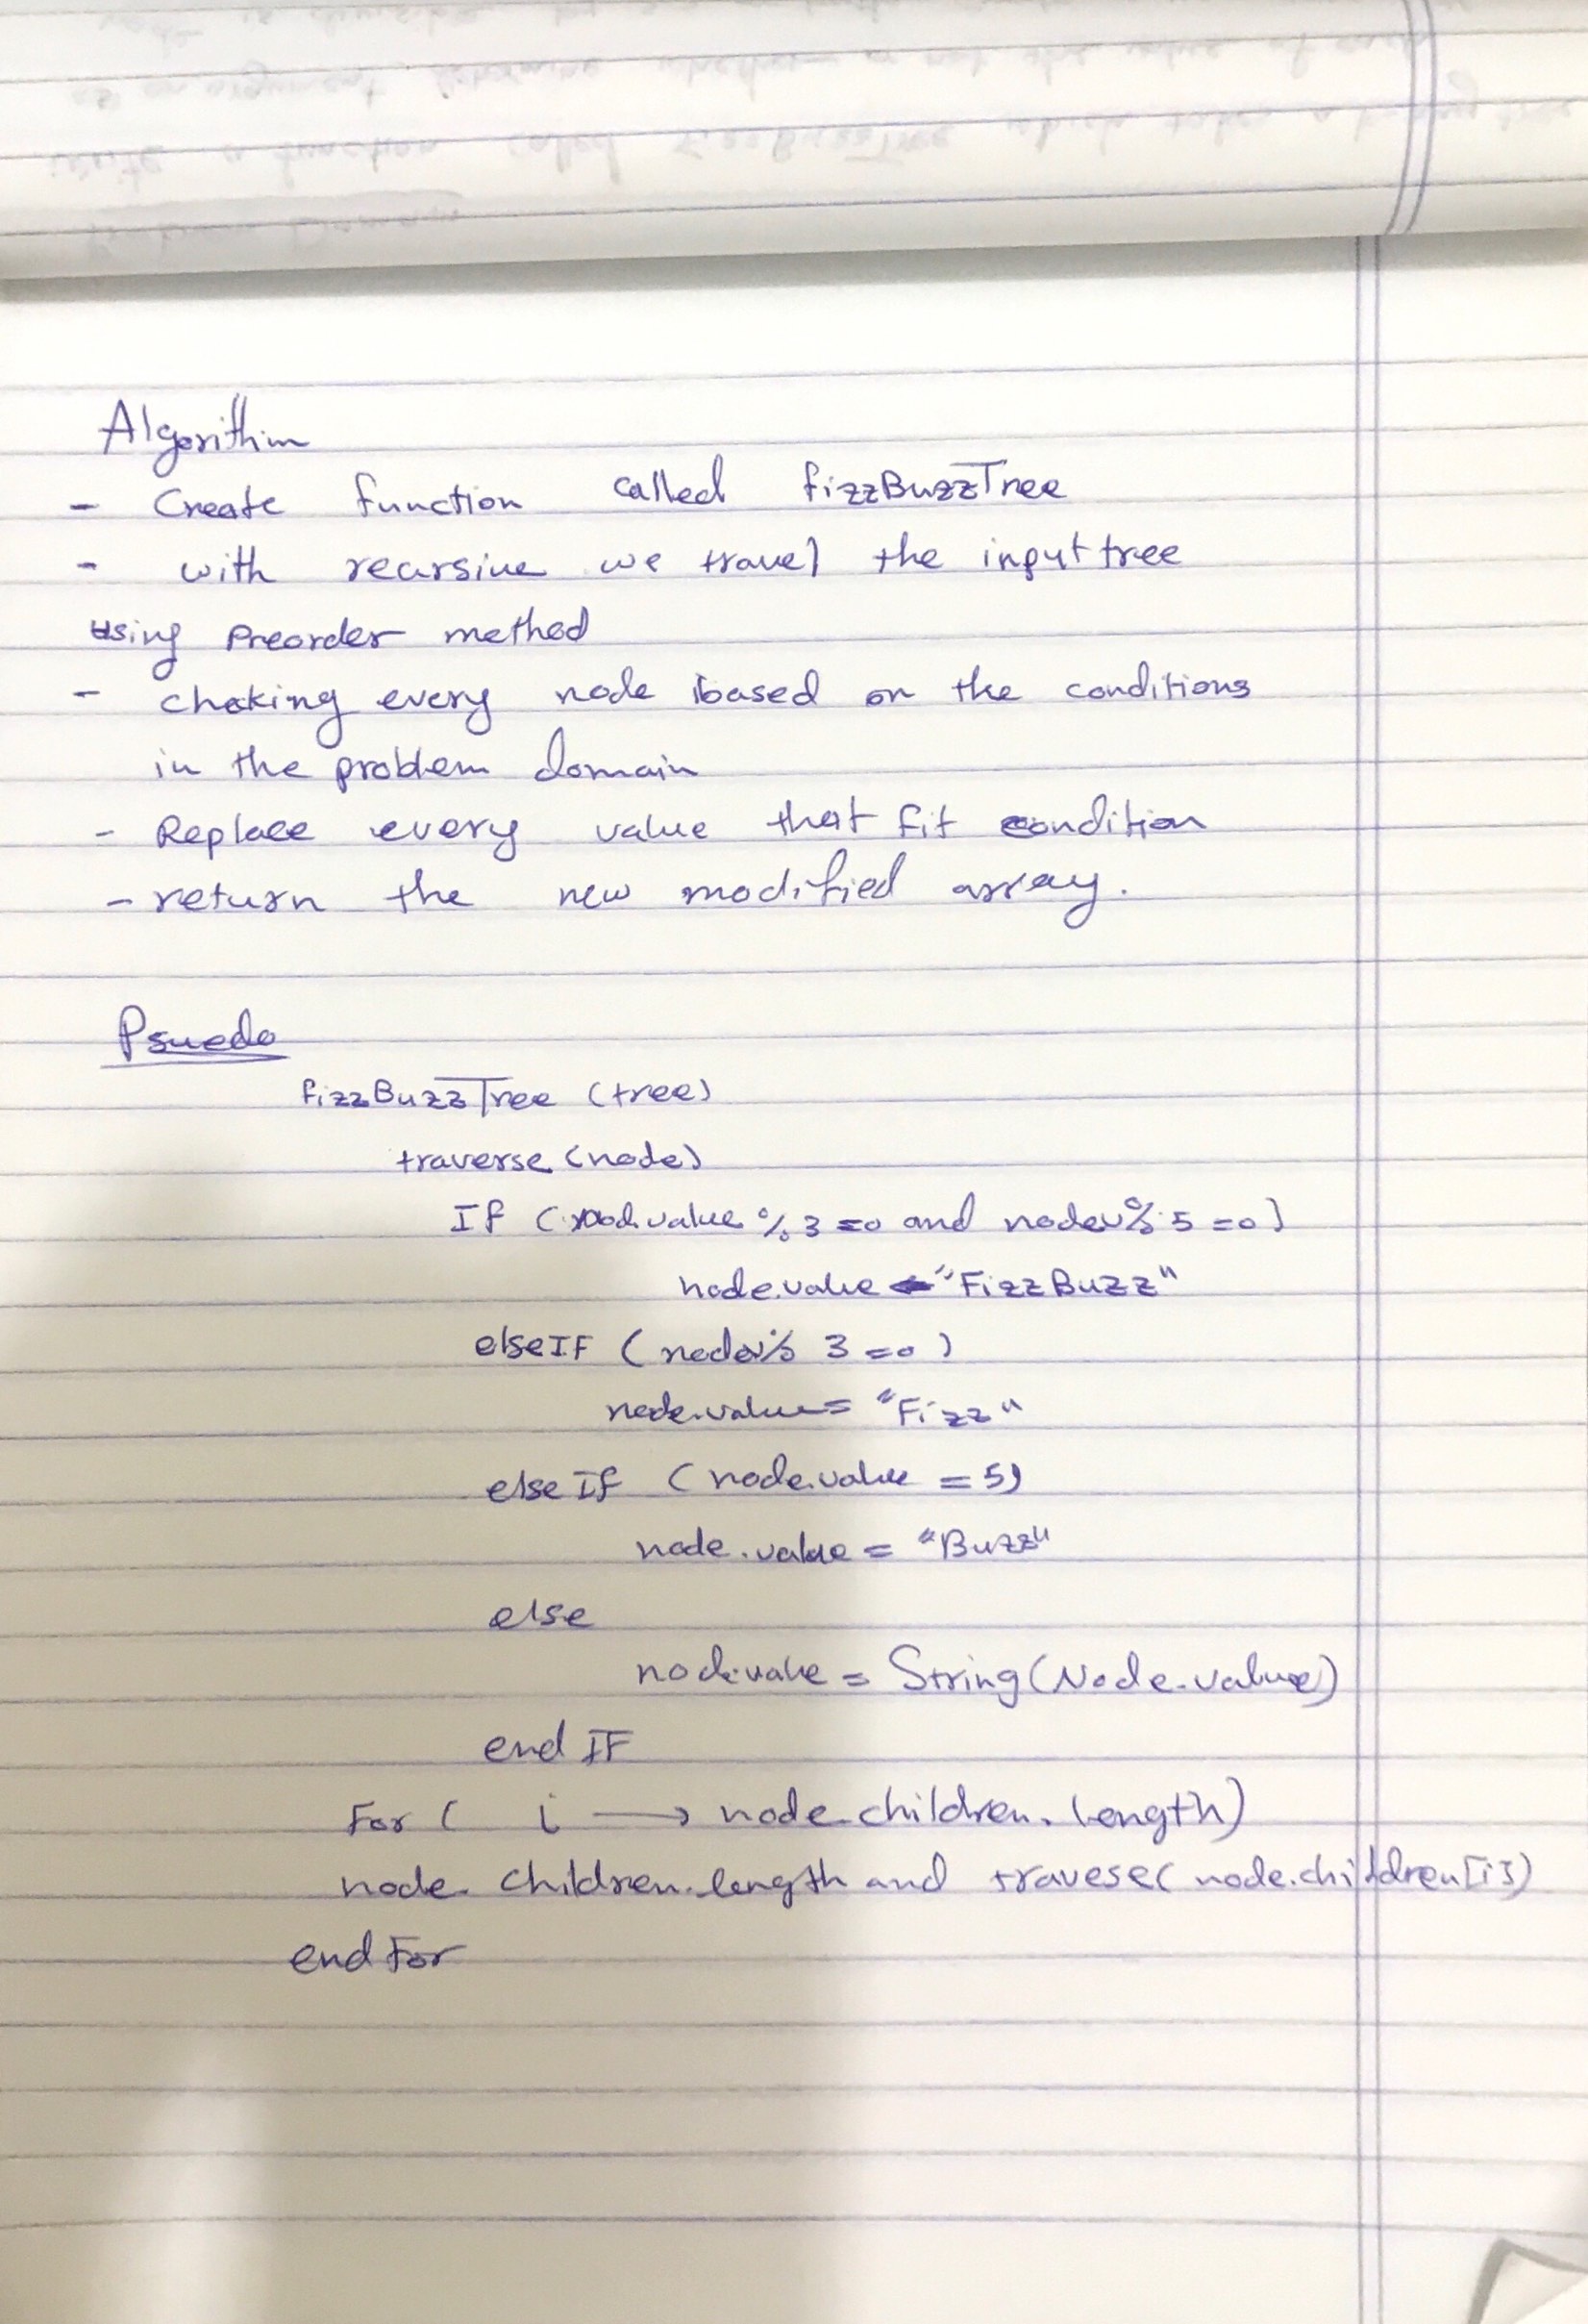 Algorithim
- Create function called fizzBuzzTree
- with recursive we travel the input tree
using Preorder method
- cheking every node based on the conditions
in the problem domain
- Replace every value that fit condition
- return the new modified array.
Psuedo
fizzBuzzTree (tree)
traverse (node)
If (node.value % 3 =0 and node.v % 5 =0)
node.value ← "FizzBuzz"
elseIF (node.v % 3 =0)
node.value = "Fizz"
else If (node.value = 5)
node.value = "Buzz"
else
node.value = String(Node.value)
end IF
For ( i → node.children.length)
node.children.length and travese( node.children[i])
end For